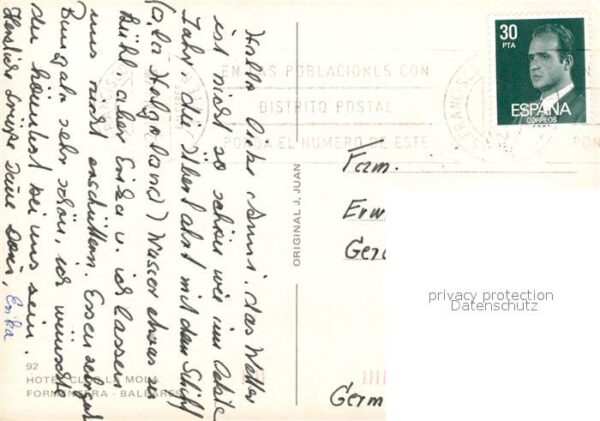 Hallo liebe Anni, das Wetter
ist nicht so schön wie im letzten
Jahr, die Überfahrt mit dem Schiff
(a la Helgoland) Wasser etwas zu
kühl, aber Erika u. ich lassen
uns nicht erschüttern. Essen
Bungalo sehr schön, ich wünschte
du könntest bei uns sein.
Herzliche Grüße Deine
Erika
92
HOTEL CLUB LA MOLA
FORMENTERA - BALEARES
ORIGINAL J. JUAN
30
PTA
ESPAÑA
CORREOS
EN LAS POBLACIONES CON
DISTRITO POSTAL
PONGA EL NUMERO DE ESTE
Fam.
Erw
Ger
privacy protection
Datenschutz
Germ